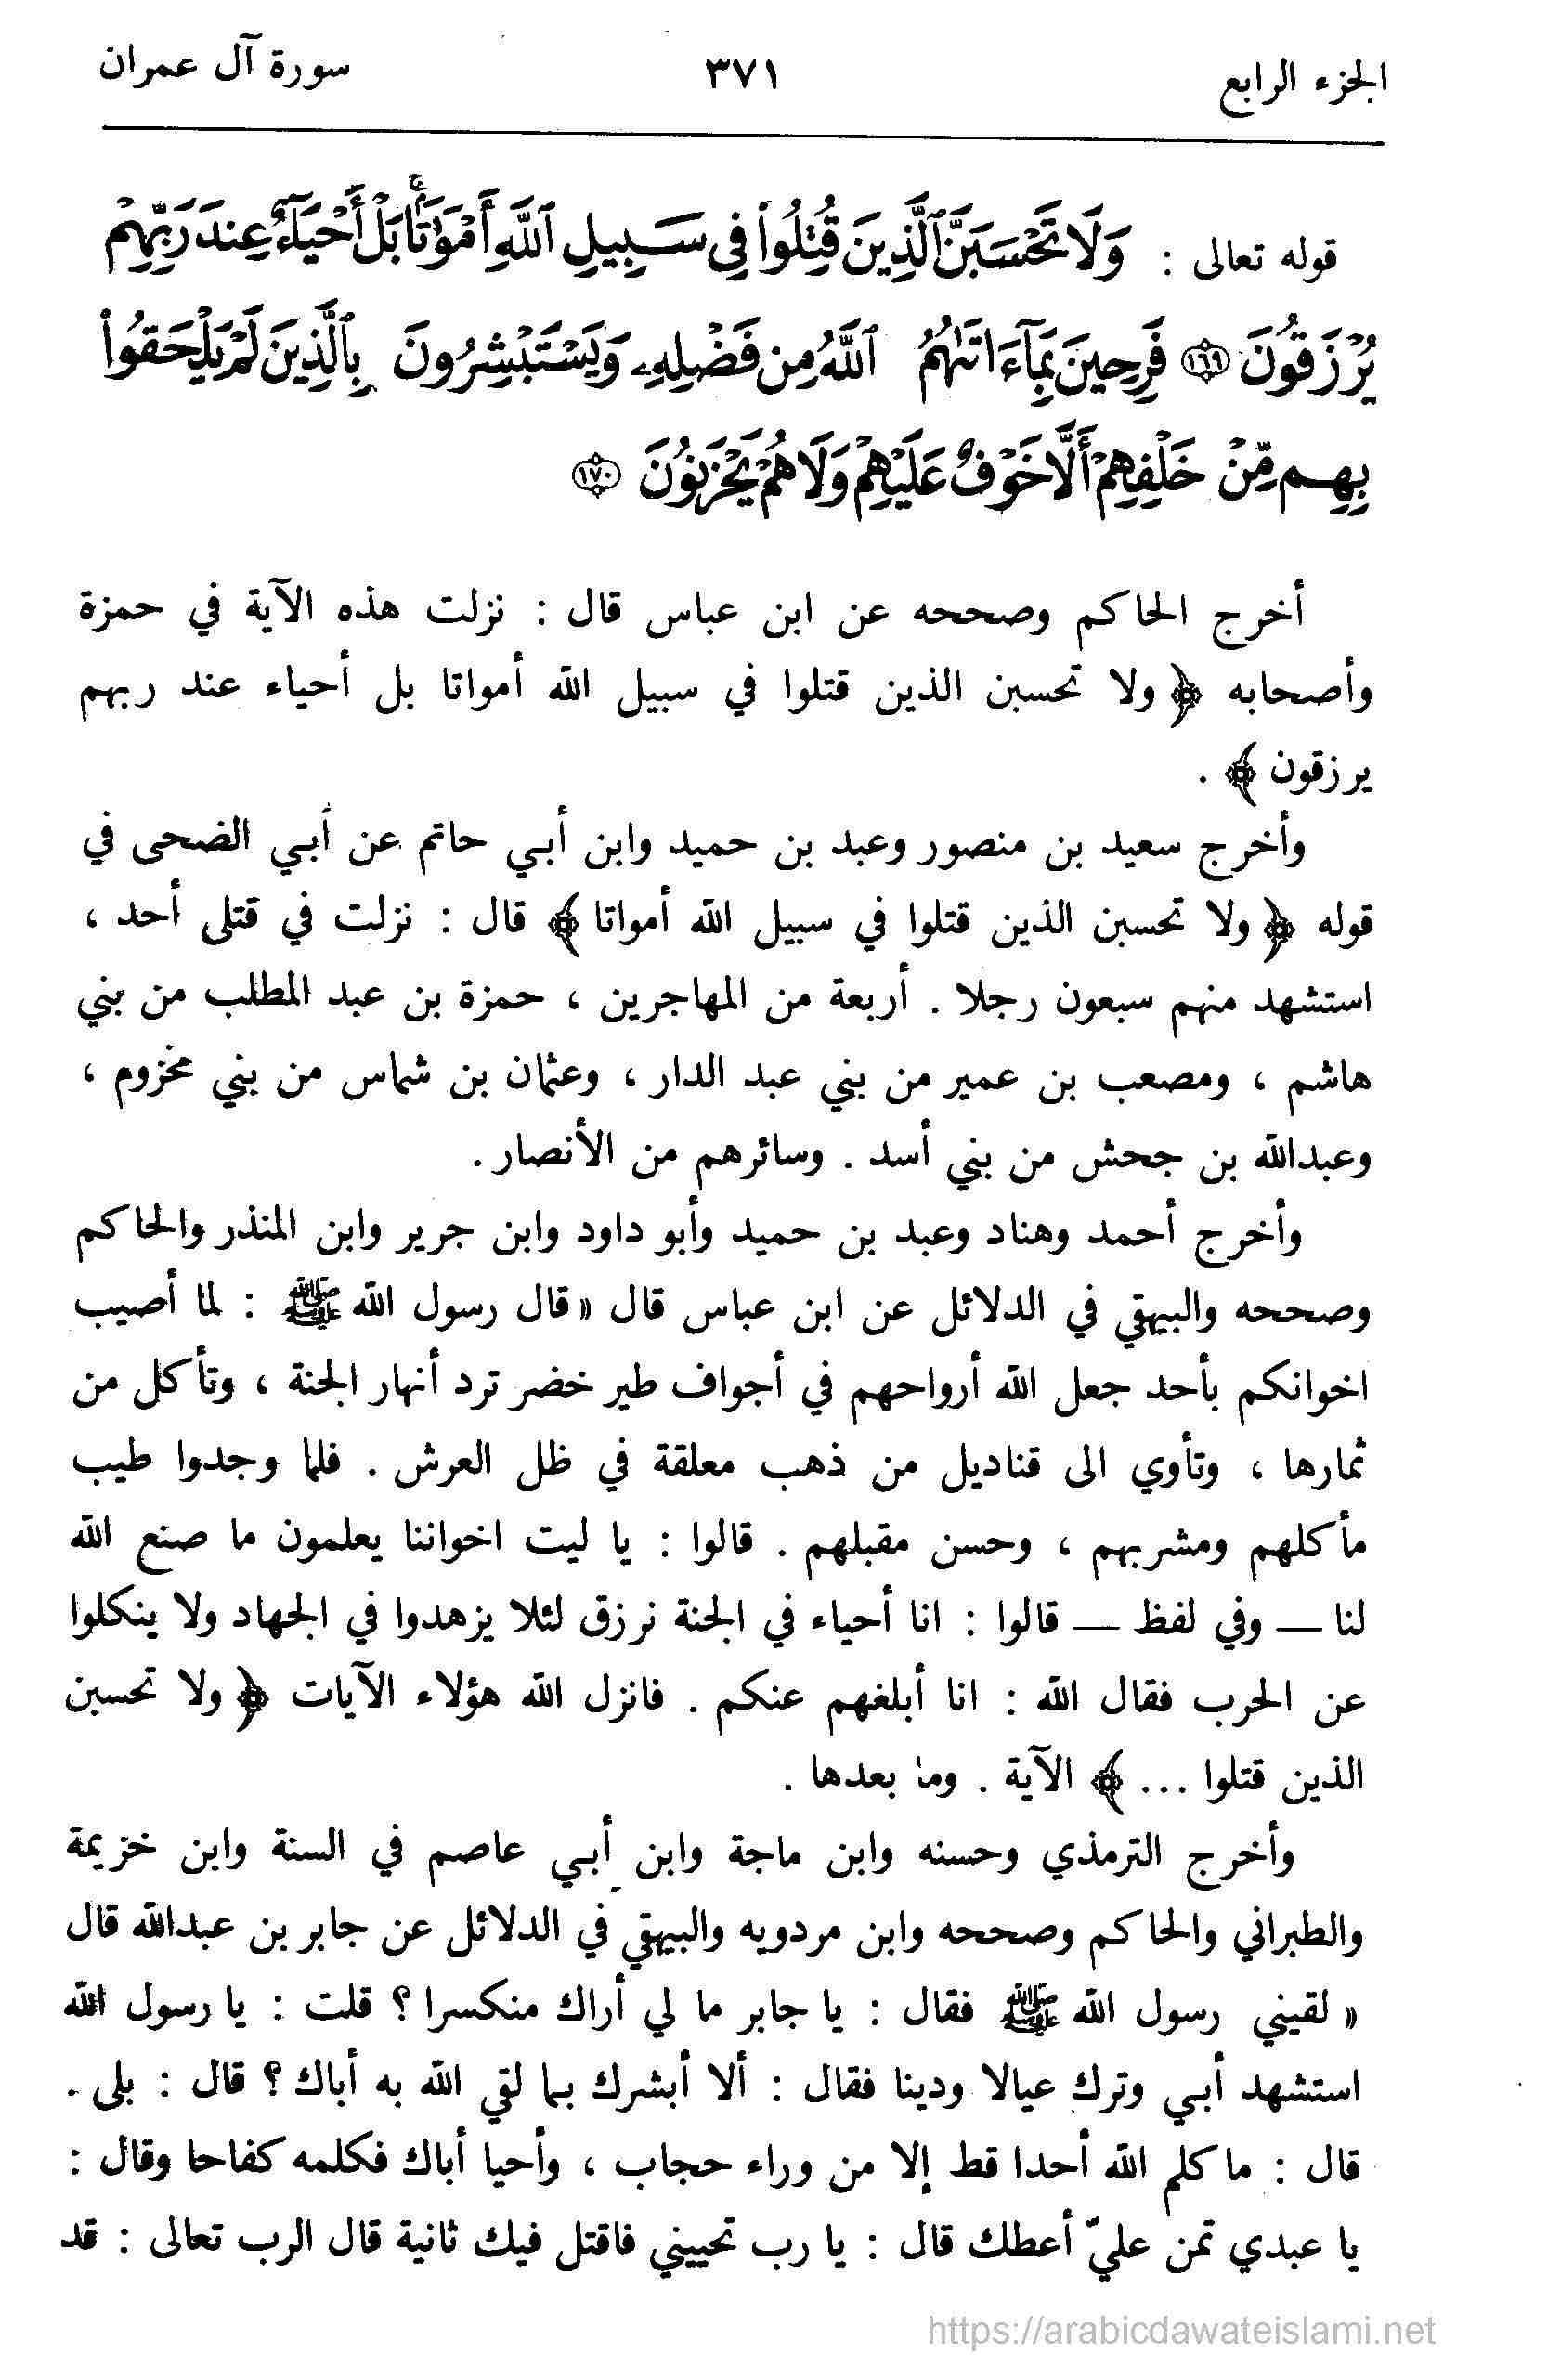 الجزء الرابع ٣٧١ سورة آل عمران
قوله تعالى : وَلَا تَحْسَبَنَّ ٱلَّذِينَ قُتِلُوا۟ فِى سَبِيلِ ٱللَّهِ أَمْوَٰتَۢا بَلْ أَحْيَآءٌ عِندَ رَبِّهِمْ
يُرْزَقُونَ ١٦٩ فَرِحِينَ بِمَآ ءَاتَىٰهُمُ ٱللَّهُ مِن فَضْلِهِۦ وَيَسْتَبْشِرُونَ بِٱلَّذِينَ لَمْ يَلْحَقُوا۟
بِهِم مِّنْ خَلْفِهِمْ أَلَّا خَوْفٌ عَلَيْهِمْ وَلَا هُمْ يَحْزَنُونَ ١٧٠
أخرج الحاكم وصححه عن ابن عباس قال : نزلت هذه الآية في حمزة
وأصحابه ﴿ ولا تحسبن الذين قتلوا في سبيل الله أمواتا بل أحياء عند ربهم
يرزقون ﴾ .
وأخرج سعيد بن منصور وعبد بن حميد وابن أبي حاتم عن أبي الضحى في
قوله ﴿ ولا تحسبن الذين قتلوا في سبيل الله أمواتا ﴾ قال : نزلت في قتلى أحد ،
استشهد منهم سبعون رجلا . أربعة من المهاجرين ، حمزة بن عبد المطلب من بني
هاشم ، ومصعب بن عمير من بني عبد الدار ، وعثمان بن شماس من بني مخزوم ،
وعبدالله بن جحش من بني أسد . وسائرهم من الأنصار .
وأخرج أحمد وهناد وعبد بن حميد وأبو داود وابن جرير وابن المنذر والحاكم
وصححه والبيهقي في الدلائل عن ابن عباس قال « قال رسول الله ﷺ : لما أصيب
اخوانكم بأحد جعل الله أرواحهم في أجواف طير خضر ترد أنهار الجنة ، وتأكل من
ثمارها ، وتأوي الى قناديل من ذهب معلقة في ظل العرش . فلما وجدوا طيب
مأكلهم ومشربهم ، وحسن مقبلهم . قالوا : يا ليت اخواننا يعلمون ما صنع الله
لنا — وفي لفظ — قالوا : انا أحياء في الجنة نرزق لئلا يزهدوا في الجهاد ولا ينكلوا
عن الحرب فقال الله : انا أبلغهم عنكم . فانزل الله هؤلاء الآيات ﴿ ولا تحسبن
الذين قتلوا ... ﴾ الآية . وما بعدها .
وأخرج الترمذي وحسنه وابن ماجة وابن أبي عاصم في السنة وابن خزيمة
والطبراني والحاكم وصححه وابن مردويه والبيهقي في الدلائل عن جابر بن عبدالله قال
« لقيني رسول الله ﷺ فقال : يا جابر ما لي أراك منكسرا ؟ قلت : يا رسول الله
استشهد أبي وترك عيالا ودينا فقال : ألا أبشرك بما لقي الله به أباك ؟ قال : بلى .
قال : ما كلم الله أحدا قط إلا من وراء حجاب ، وأحيا أباك فكلمه كفاحا وقال :
يا عبدي تمن عليّ أعطك قال : يا رب تحييني فاقتل فيك ثانية قال الرب تعالى : قد
https://arabicdawateislami.net